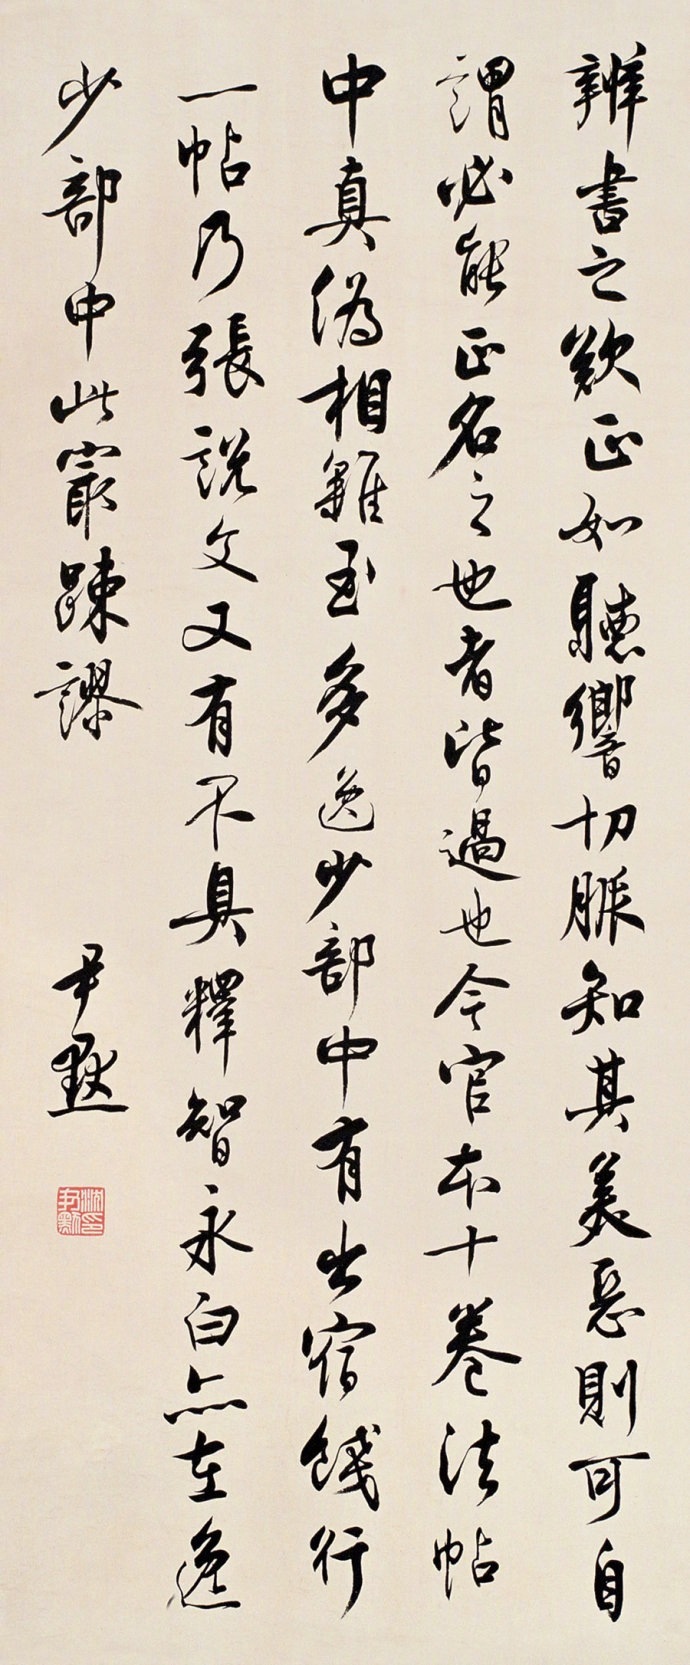 辨書之正如聽響切脈知其美惡則可自
謂必能正名之也者皆過也今官本十卷法帖
中真偽相雜至多逸少部中有出宿餞行
一帖乃張說文又有不具釋智永白亦在逸
少部中此㝡踈謬
尹默
沈尹默印